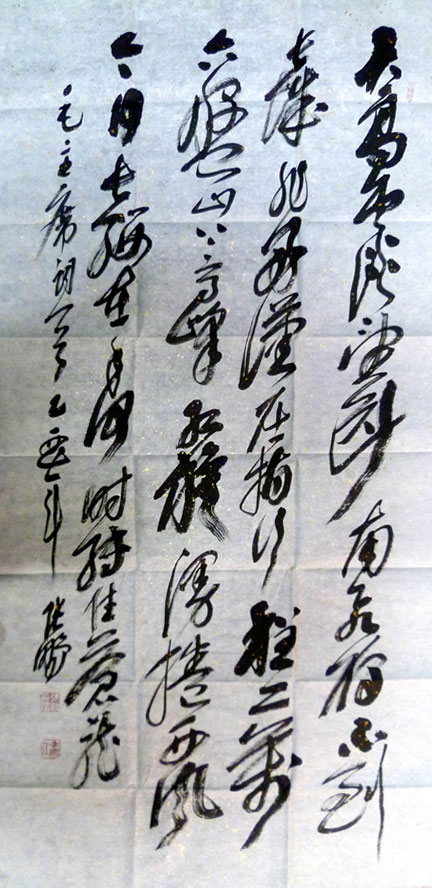 天高雲淡望斷南飛雁不到
長城非好漢屈指行程二萬
六盤山上高峰紅旗漫捲西風
今日長纓在手何時縛住蒼龍
毛主席詞一首乙酉年